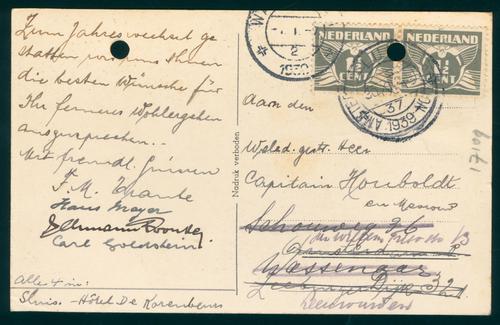 Zum Jahreswechsel ge
statten wir uns Ihnen
die besten Wünsche für
Ihr ferneres Wohlergehen
auszusprechen..
Mit freundl. Grüssen
F. M.
Hans Mayer
Carl Goldstein
Alle 4 in:
Sluis. - Hôtel De Korenbeurs
Nadruk verboden
NEDERLAND
1½
CENT
NEDERLAND
1½
CENT
2
1939
37
1939
Aan den
Weled. gestr. Heer
Capitain Houboldt
en Mevrouw
Schouweg
de Willem
13
Amsterdam
Wassenaar
Leeuwarden
17109